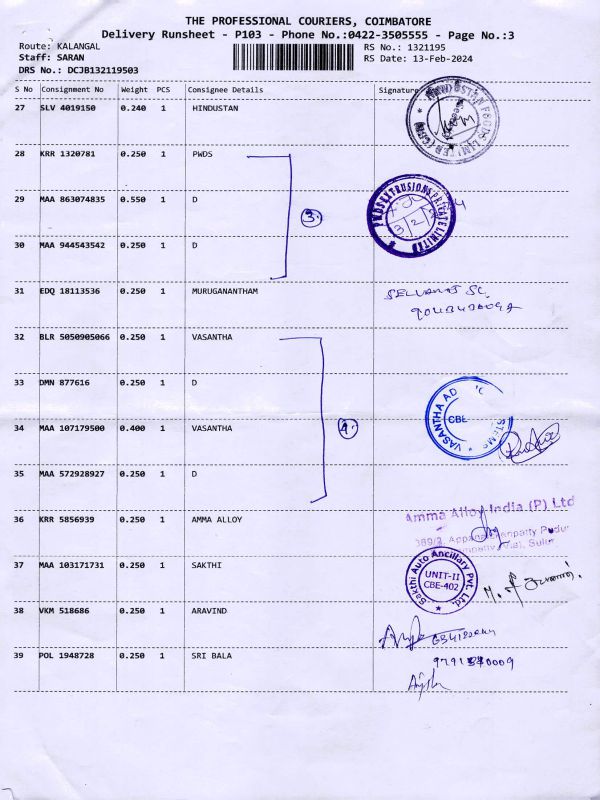 THE PROFESSIONAL COURIERS, COIMBATORE
Delivery Runsheet - P103 - Phone No.:0422-3505555 - Page No.:3
Route: KALANGAL RS No.: 1321195
Staff: SARAN RS Date: 13-Feb-2024
DRS No.: DCJB132119503
S No Consignment No Weight PCS Consignee Details Signature
27 SLV 4019150 0.240 1 HINDUSTAN
HINDUSTAN FOODS LIMITED
28 KRR 1320781 0.250 1 PWDS
29 MAA 863074835 0.550 1 D
3.
PWDS EXTRUSIONS PRIVATE LIMITED
30 MAA 944543542 0.250 1 D
31 EDQ 18113536 0.250 1 MURUGANANTHAM
32 BLR 5050905066 0.250 1 VASANTHA
33 DMN 877616 0.250 1 D
VASANTHA AD
CBE
34 MAA 107179500 0.400 1 VASANTHA
4.
35 MAA 572928927 0.250 1 D
36 KRR 5856939 0.250 1 AMMA ALLOY
Amma Alloy India (P) Ltd
37 MAA 103171731 0.250 1 SAKTHI
Sakthi Auto Ancillary Pvt. Ltd.
UNIT-II
CBE-402
38 VKM 518686 0.250 1 ARAVIND
39 POL 1948728 0.250 1 SRI BALA